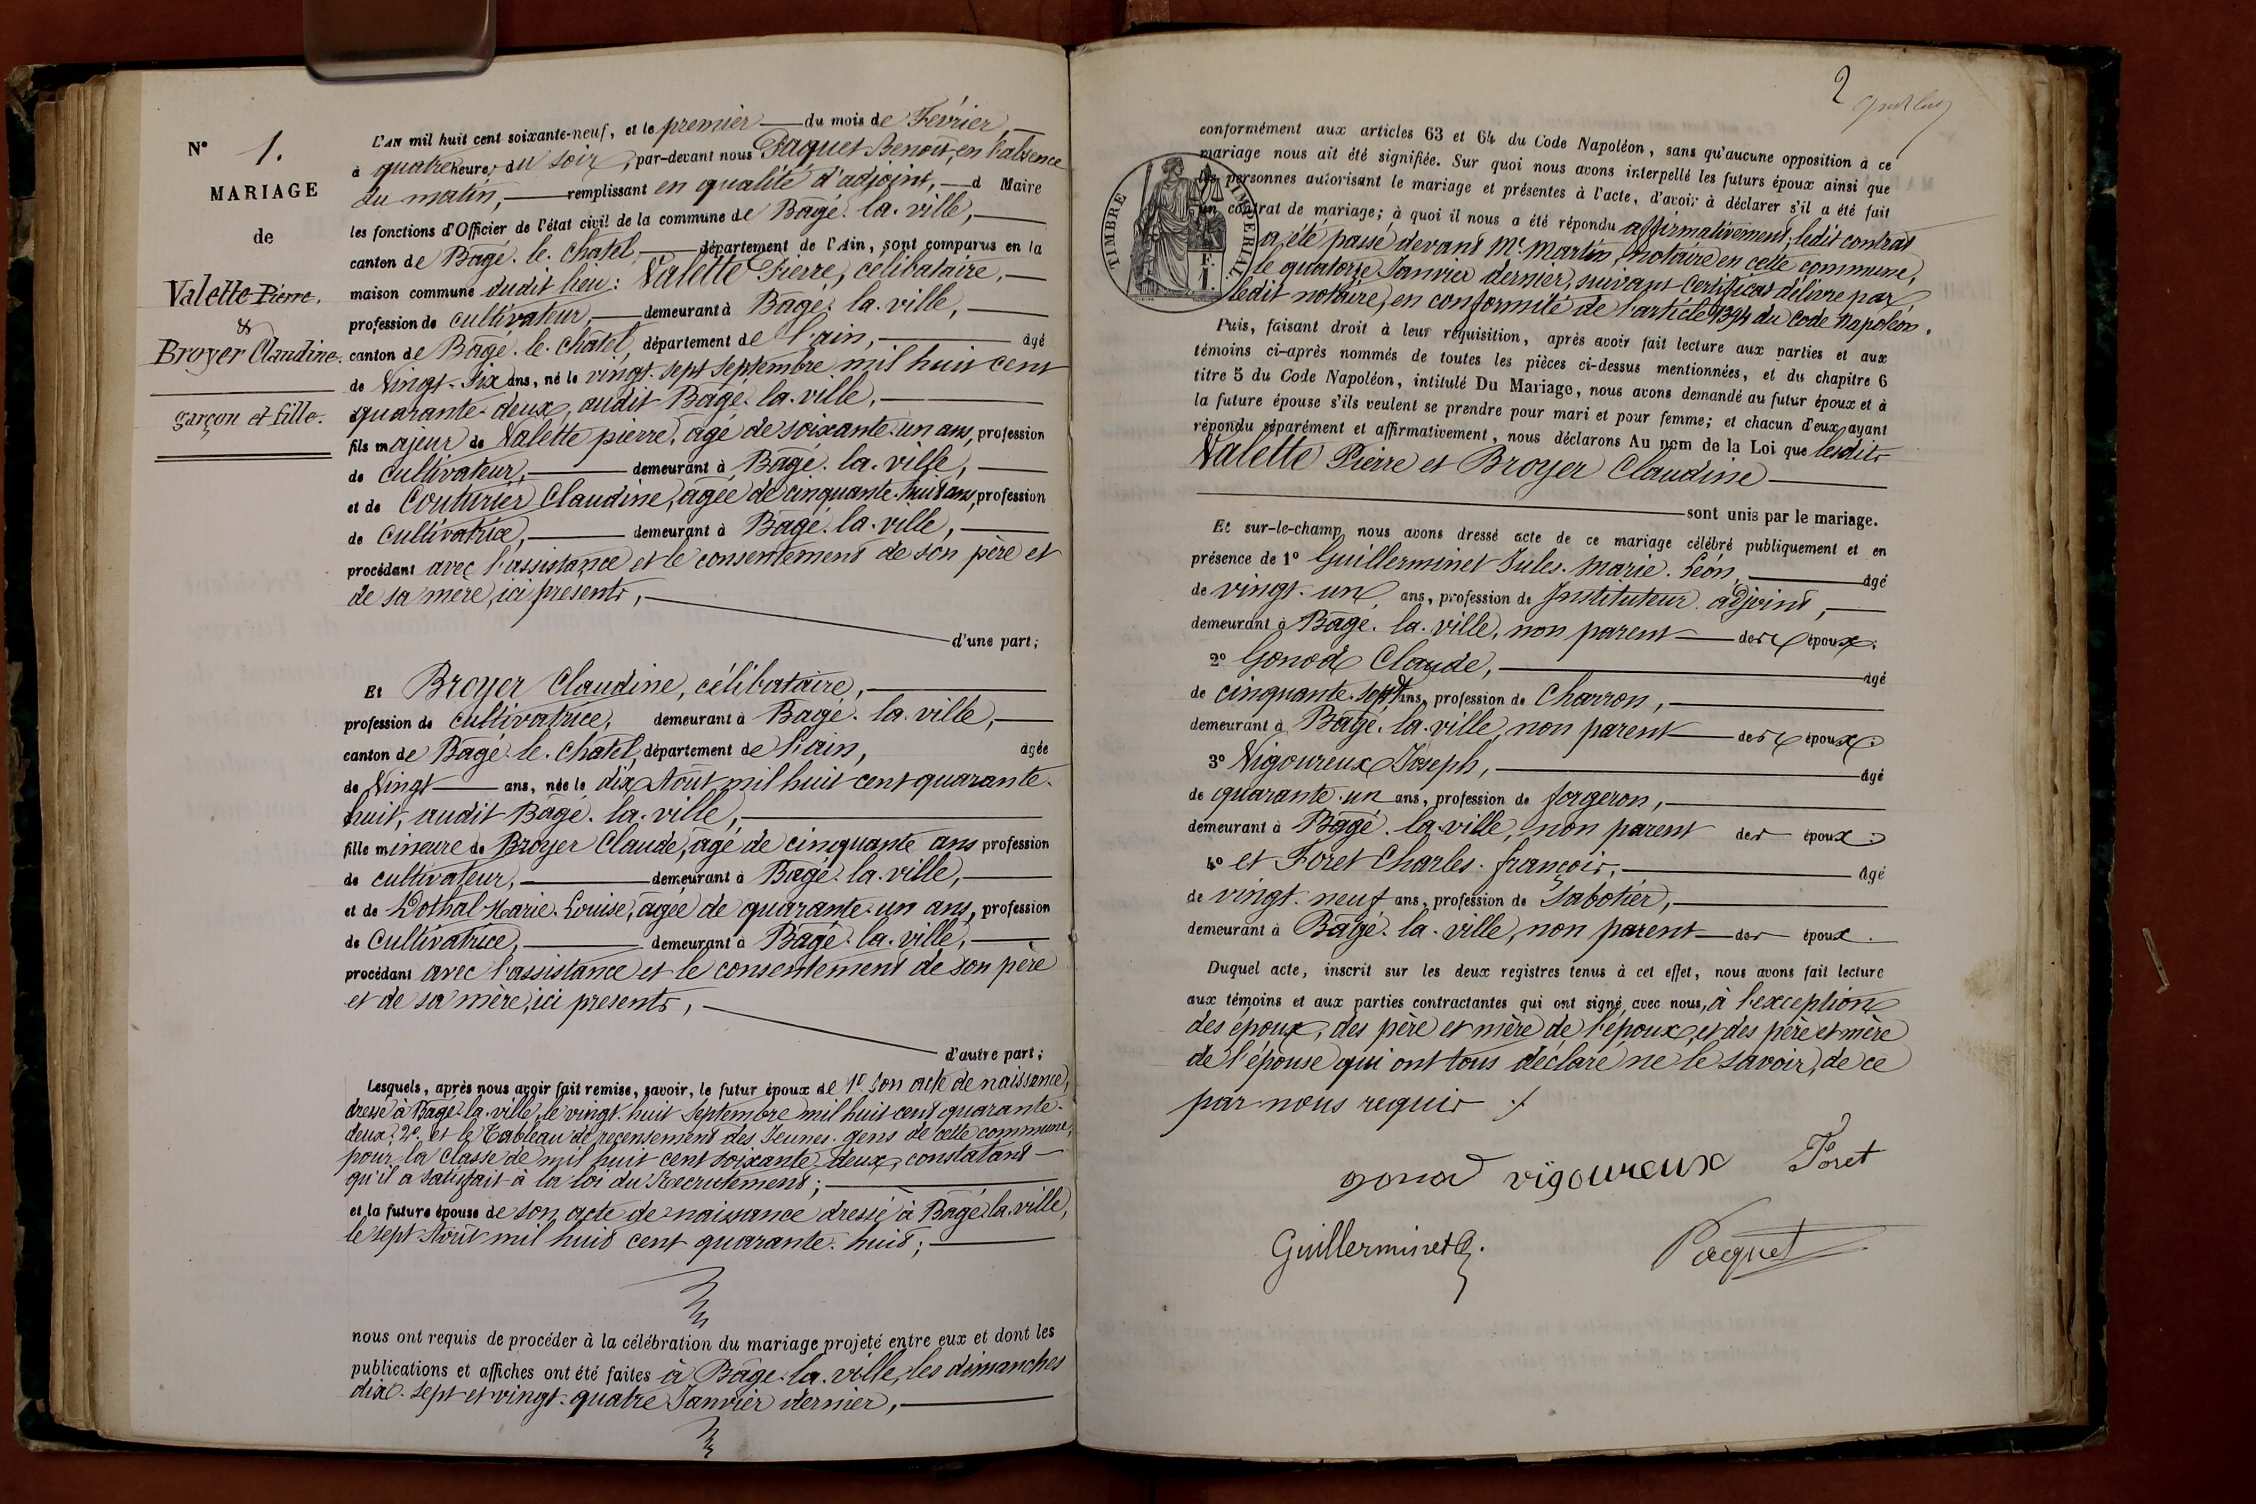 N° 1.
MARIAGE
de
Valette Pierre.
&
Broyer Claudine.
garçon et fille.
L'AN mil huit cent soixante-neuf, et le premier du mois de Février
à quatre heures du soir, par-devant nous Paquet Benoit, en l'absence
du matin, remplissant en qualité d'adjoint, d Maire
les fonctions d'Officier de l'état civil de la commune de Bâgé-la-ville,
canton de Bâgé-le-Chatel département de l'Ain, sont comparus en la
maison commune dudit lieu: Valette Pierre, célibataire,
profession de cultivateur, demeurant à Bâgé-la-ville,
canton de Bâgé-le-Chatel, département de l'ain, âgé
de Vingt-Six ans, né le vingt-sept Septembre mil huit cent
quarante-deux, audit Bâgé-la-ville,
fils majeur de Valette pierre, âgé de soixante-un ans, profession
de cultivateur, demeurant à Bâgé-la-ville,
et de Couturier Claudine, âgée de cinquante-huit ans, profession
de cultivatrice, demeurant à Bâgé-la-ville,
procédant avec l'assistance et le consentement de son père et
de sa mère, ici présents,
d'une part;
Et Broyer Claudine, célibataire,
profession de cultivatrice, demeurant à Bâgé-la-ville,
canton de Bâgé-le-Chatel, département de l'ain, âgée
de Vingt ans, née le dix Août mil huit cent quarante-
huit, audit Bâgé-la-ville,
fille mineure de Broyer Claude, âgé de cinquante ans profession
de cultivateur, demeurant à Bâgé-la-ville,
et de Dothal Marie-Louise, âgée de quarante-un ans, profession
de Cultivatrice, demeurant à Bâgé-la-ville,
procédant avec l'assistance et le consentement de son père
et de sa mère, ici présents,
d'autre part;
Lesquels, après nous avoir fait remise, savoir, le futur époux de 1° son acte de naissance,
dressé à Bâgé-la-ville, le vingt-huit Septembre mil huit cent quarante-
deux; 2°. et le Tableau de recensement des Jeunes-gens de cette commune,
pour la classe de mil huit cent soixante-deux, constatant
qu'il a satisfait à la loi du Recrutement;
et la future épouse de son acte de naissance dressé à Bâgé-la-ville,
le sept Août mil huit cent quarante-huit;
nous ont requis de procéder à la célébration du mariage projeté entre eux et dont les
publications et affiches ont été faites à Bâgé-la-ville, les dimanches
dix-sept et vingt-quatre Janvier dernier,
2
conformément aux articles 63 et 64 du Code Napoléon, sans qu'aucune opposition à ce
mariage nous ait été signifiée. Sur quoi nous avons interpellé les futurs époux ainsi que
les personnes autorisant le mariage et présentes à l'acte, d'avoir à déclarer s'il a été fait
un contrat de mariage; à quoi il nous a été répondu affirmativement; ledit contrat
a été passé devant Me. Martin, notaire en cette commune,
le quatorze Janvier dernier, suivant Certificat délivré par
ledit notaire, en conformité de l'article 1394 du Code Napoléon.
TIMBRE IMPÉRIAL.
F.
1.
Puis, faisant droit à leur réquisition, après avoir fait lecture aux parties et aux
témoins ci-après nommés de toutes les pièces ci-dessus mentionnées, et du chapitre 6
titre 5 du Code Napoléon, intitulé Du Mariage, nous avons demandé au futur époux et à
la future épouse s'ils veulent se prendre pour mari et pour femme; et chacun d'eux ayant
répondu séparément et affirmativement, nous déclarons Au nom de la Loi que lesdits
Valette Pierre et Broyer Claudine
sont unis par le mariage.
Et sur-le-champ nous avons dressé acte de ce mariage célébré publiquement et en
présence de 1° Guillerminet Jules-Marie-Léon, âgé
de vingt-un ans, profession de Instituteur adjoint,
demeurant à Bâgé-la-ville, non parent des époux.
2° Gonod Claude, âgé
de cinquante-sept ans, profession de Charron,
demeurant à Bâgé-la-ville, non parent des époux.
3° Vigoureux Joseph, âgé
de quarante-un ans, profession de forgeron,
demeurant à Bâgé-la-ville, non parent des époux.
4° et Foret Charles-françois, âgé
de vingt-neuf ans, profession de Sabotier,
demeurant à Bâgé-la-ville, non parent des époux.
Duquel acte, inscrit sur les deux registres tenus à cet effet, nous avons fait lecture
aux témoins et aux parties contractantes qui ont signé avec nous, à l'exception
des époux, des père et mère de l'époux, et des père et mère
de l'épouse qui ont tous déclaré ne le savoir, de ce
par nous requis
gonod vigoureux Foret
Guillerminet Paquet